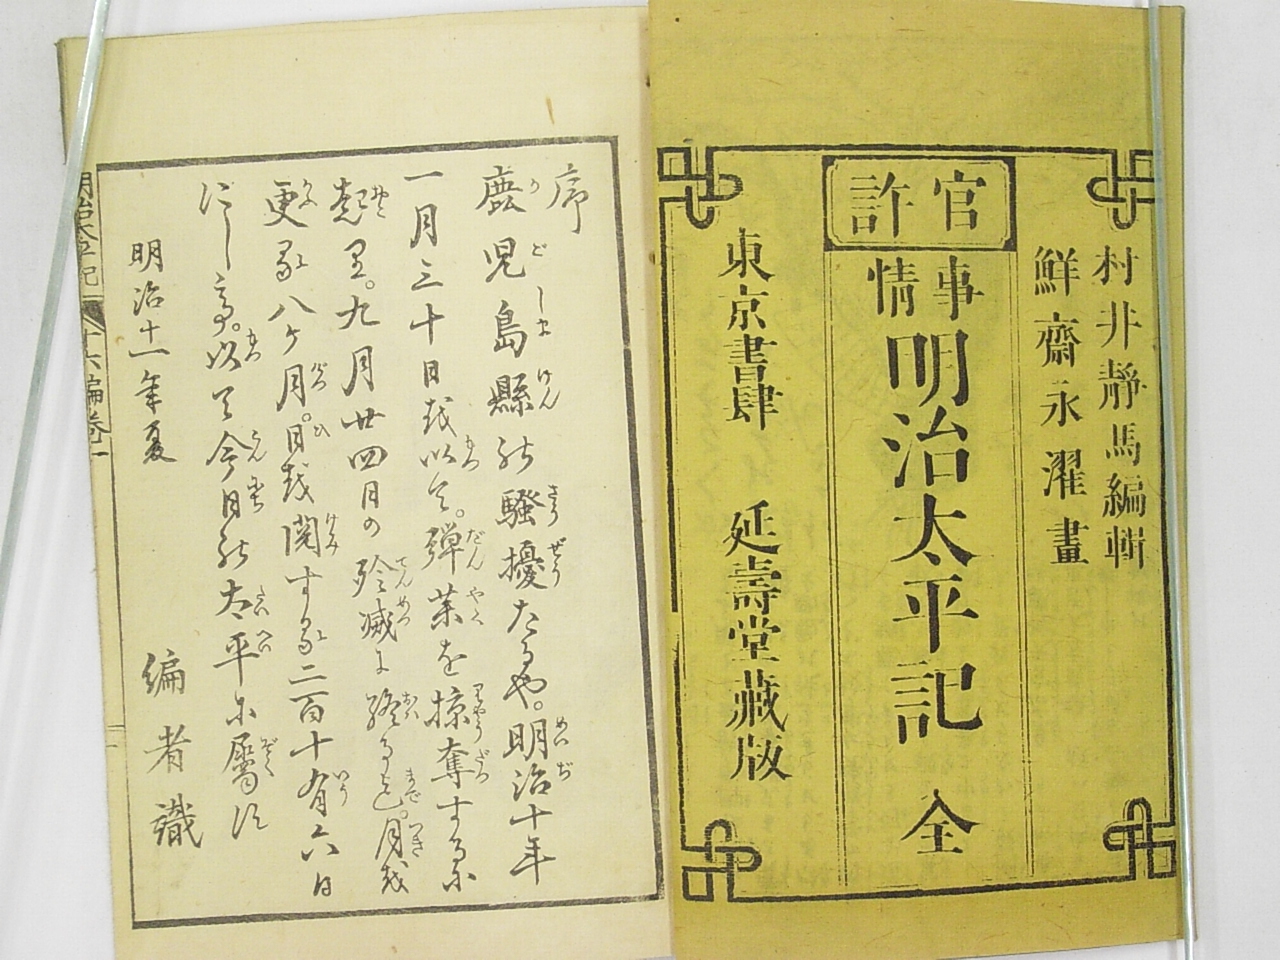 村井靜馬編輯
鮮齋永濯畫
官許
事情
明治太平記 全
東京書肆 延壽堂藏版
序
鹿児島縣の騒擾たるや。明治十年
一月三十日を以て。弾藥を掠奪するに
起り。九月廿四日の殄滅に終る迄。月を
更る八ヶ月。日を閲する二百十有六日
にし
以て今日の太平に屬す
明治十一年夏
編者識
明治太平記 十六編巻一